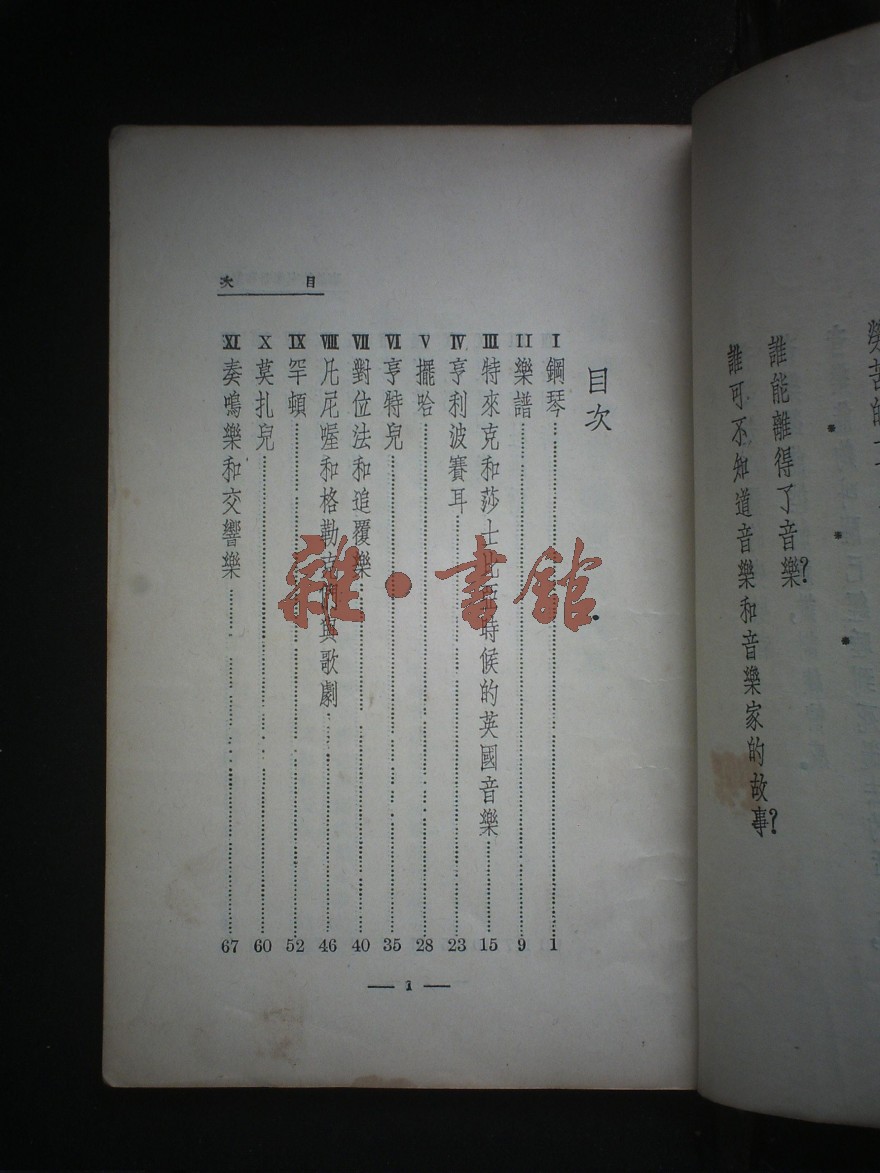 誰能離得了音樂?
誰可不知道音樂和音樂家的故事?
目 次
目次
I 鋼琴 1
II 樂譜 9
III 特來克和莎士比亞時候的英國音樂 15
IV 亨利波賽耳 23
V 擺哈 28
VI 亨特兒 35
VII 對位法和追覆樂 40
VIII 凡尼喔和格勒克與歌劇 46
IX 罕頓 52
X 莫扎兒 60
XI 奏鳴樂和交響樂 67
— 1 —
雜·書館